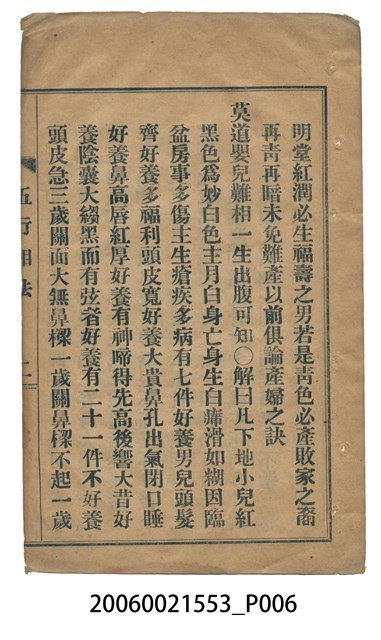 明堂紅潤必生福壽之男若是青色必產敗家之裔
再青再暗未免難產以前俱論產婦之訣
莫道嬰兒難相一生出腹可知〇解曰凡下地小兒紅
黑色爲妙白色主月白身亡身生白痛滑如糊因臨
盆房事多傷主生瘡疾多病有七件好養男兒頭髮
齊好養多福利頭皮寬好養大貴鼻孔出氣閉口睡
好養鼻高唇紅厚好養有神啼得先高後響大昔好
養陰囊大縐黑而有弦者好養有二十一件不好養
頭皮急三歲關面大無鼻樑一歲關鼻樑不起一歲
五行相法 二
20060021553_P006